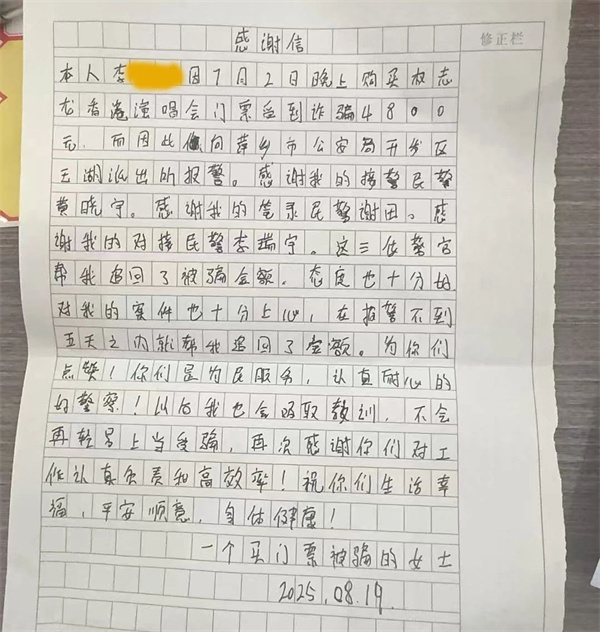 感谢信
修正栏
本人李 因7月2日晚上购买权志
龙香港演唱会门票受到诈骗4800
元，而因此向萍乡市公安局开发区
玉湖派出所报警。感谢我的接警民警
黄晓宇。感谢我的笔录民警谢田。感
谢我的对接民警李瑞宇。这三位警官
帮我追回了被骗金额。态度也十分好
对我的案件也十分上心，在报警不到
五天之内就帮我追回了金额。为你们
点赞！你们是为民服务，认真耐心的
好警察！以后我也会吸取教训，不会
再轻易上当受骗，再次感谢你们对工
作认真负责和高效率！祝你们生活幸
福，平安顺意，身体健康！
一个买门票被骗的女士
2025.08.19.